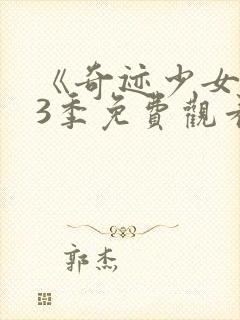 《奇迹少女
3季免費觀看
郭杰